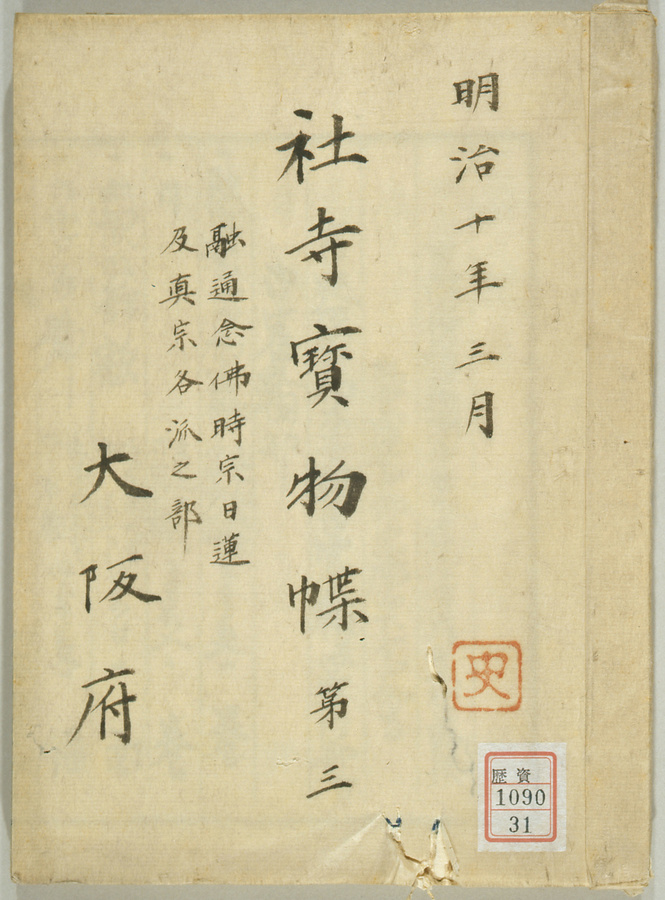 明治十年三月
社寺寳物幉第三
融通念佛時宗日蓮
及真宗各派之部
大阪府
史
歴資
1090
31